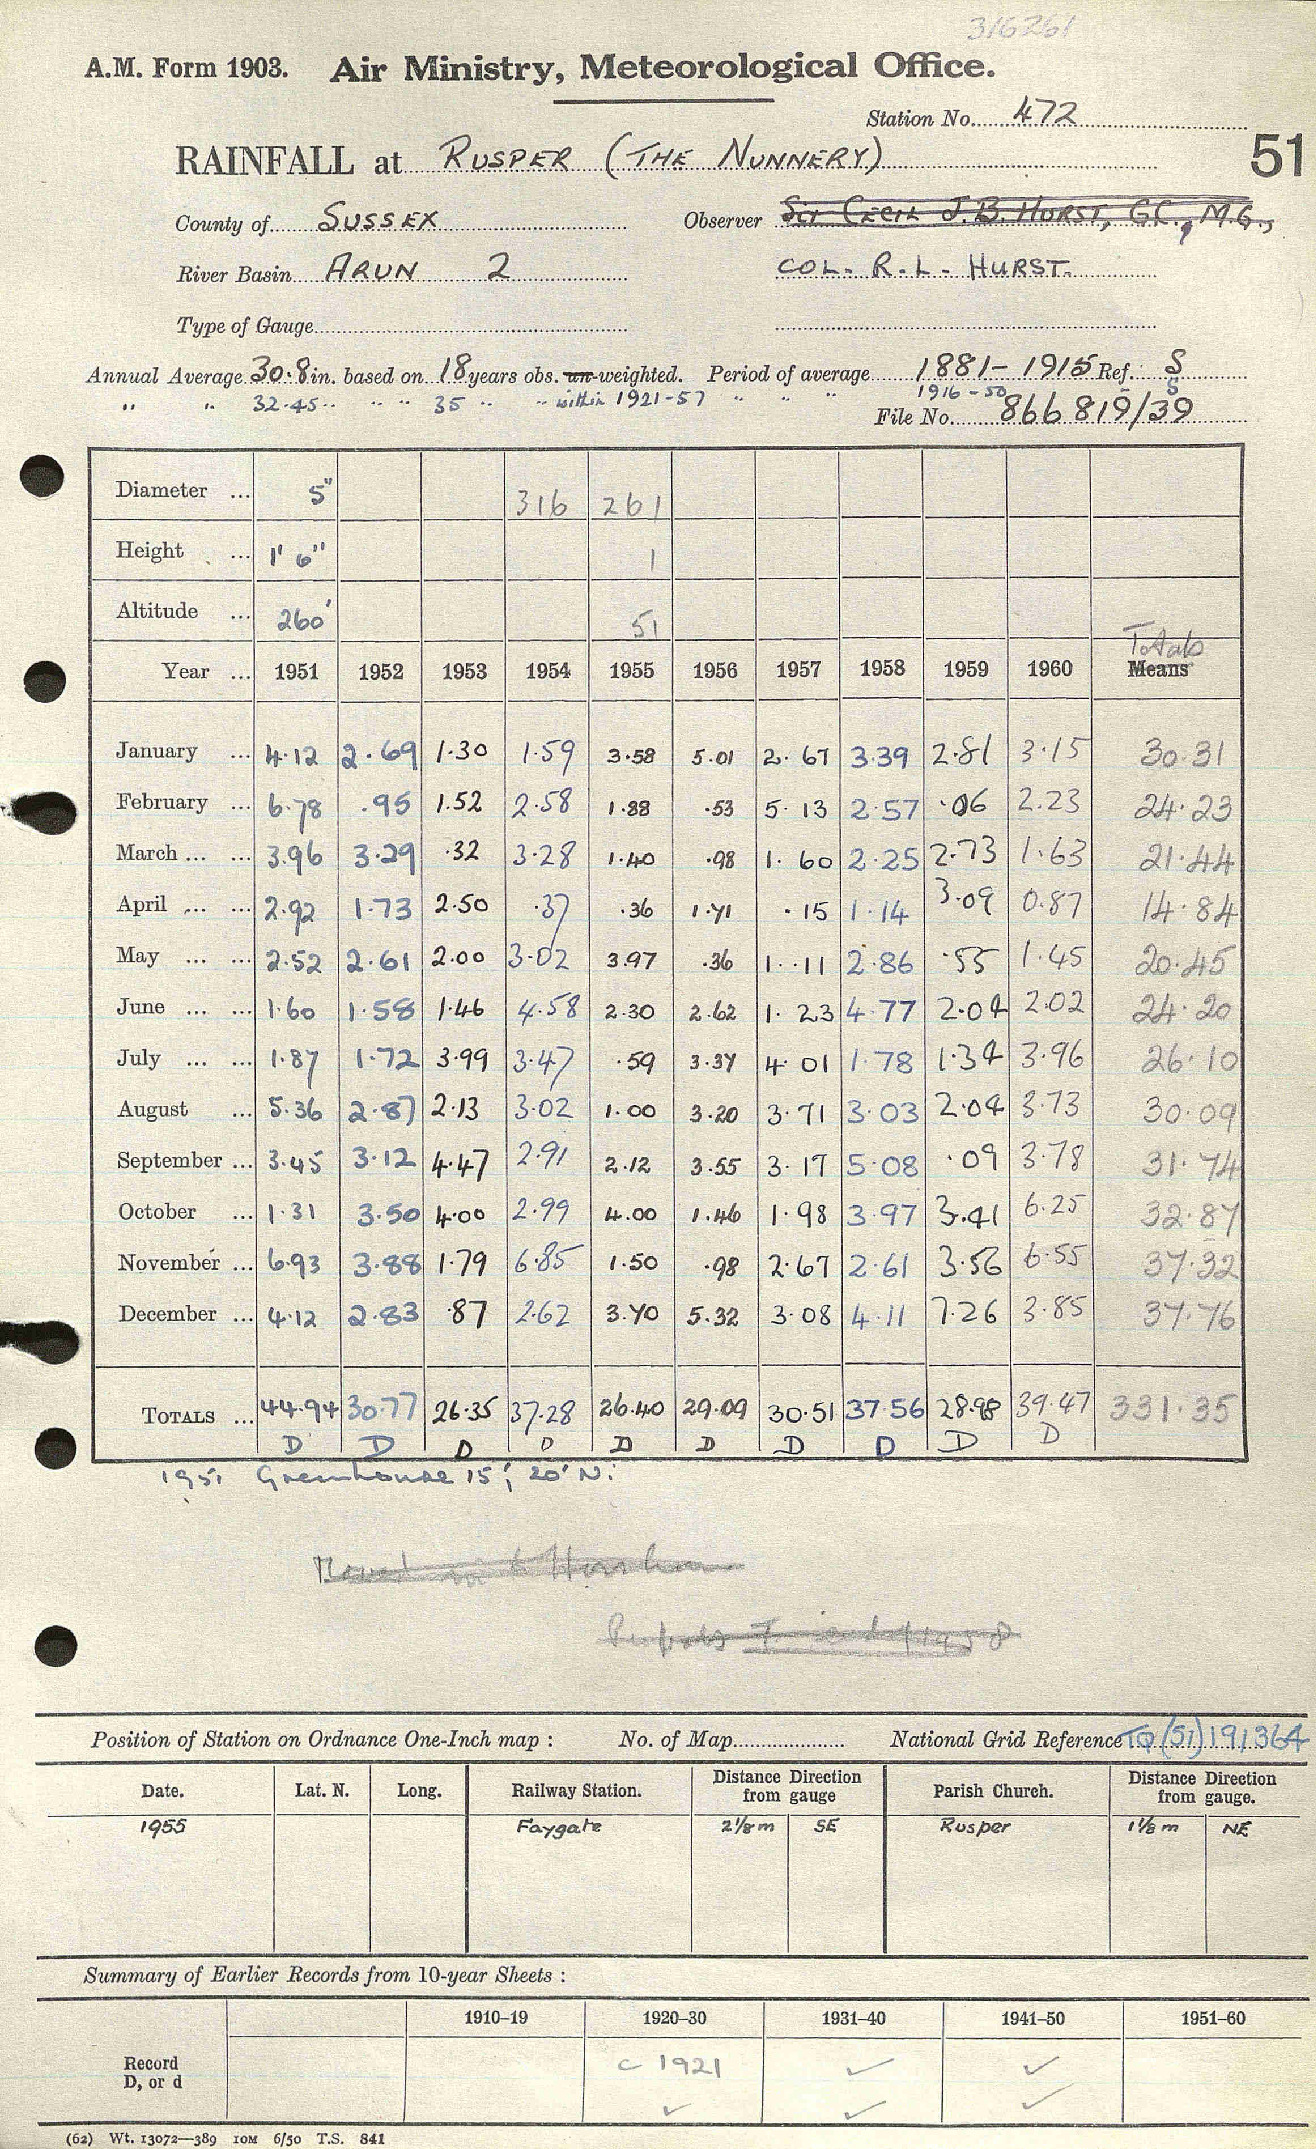 316261
A.M. Form 1903. Air Ministry, Meteorological Office.
Station No. 472
51
RAINFALL at RUSPER (THE NUNNERY)
County of SUSSEX Observer Sir CECIL J.B. HURST, G.C., M.G.,
River Basin ARUN 2 COL. R.L. HURST.
Type of Gauge
Annual Average 30.8 in. based on 18 years obs. un-weighted. Period of average 1881-1915 Ref. S
" " 32.45 " " " 35 " " within 1921-57 " " " 1916-50 S
File No. 866819/39
Diameter ... 5" 316 261
Height ... 1' 6" 1
Altitude ... 260' 51
Totals
Year ... 1951 1952 1953 1954 1955 1956 1957 1958 1959 1960 Means
January ... 4.12 2.69 1.30 1.59 3.58 5.01 2.67 3.39 2.81 3.15 30.31
February ... 6.78 .95 1.52 2.58 1.88 .53 5.13 2.57 .06 2.23 24.23
March ... ... 3.96 3.29 .32 3.28 1.40 .98 1.60 2.25 2.73 1.63 21.44
April ... ... 2.92 1.73 2.50 .37 .36 1.71 .15 1.14 3.09 0.87 14.84
May ... ... 2.52 2.61 2.00 3.02 3.97 .36 1.11 2.86 .55 1.45 20.45
June ... ... 1.60 1.58 1.46 4.58 2.30 2.62 1.23 4.77 2.04 2.02 24.20
July ... ... 1.87 1.72 3.99 3.47 .59 3.37 4.01 1.78 1.34 3.96 26.10
August ... 5.36 2.87 2.13 3.02 1.00 3.20 3.71 3.03 2.04 3.73 30.09
September ... 3.45 3.12 4.47 2.91 2.12 3.55 3.17 5.08 .09 3.78 31.74
October ... 1.31 3.50 4.00 2.99 4.00 1.46 1.98 3.97 3.41 6.25 32.87
November ... 6.93 3.88 1.79 6.85 1.50 .98 2.67 2.61 3.56 6.55 37.32
December ... 4.12 2.83 .87 2.62 3.70 5.32 3.08 4.11 7.26 3.85 37.76
TOTALS ... 44.94 30.77 26.35 37.28 26.40 29.09 30.51 37.56 28.98 39.47 331.35
D D D D D D D D D D
1951 Greenhouse 15', 20' N.
Position of Station on Ordnance One-Inch map : No. of Map National Grid Reference TQ (51) 191364
Date. Lat. N. Long. Railway Station. Distance Direction from gauge Parish Church. Distance Direction from gauge.
1955 Faygate 2⅛ m SE Rusper 1⅛ m NE
Summary of Earlier Records from 10-year Sheets :
1910–19 1920–30 1931–40 1941–50 1951–60
Record c 1921 ✓ ✓
D, or d ✓ ✓ ✓
(62) Wt. 13072—389 10M 6/50 T.S. 841